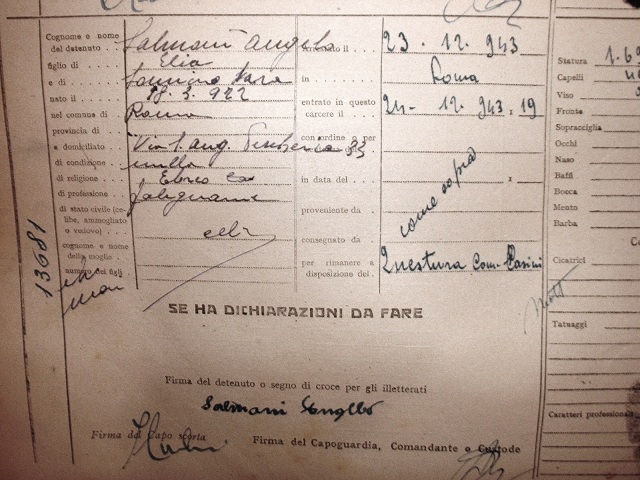 Cognome e nome del detenuto Salmoni Angelo
figlio di Elia
e di Sara
nato il 18.3.922
nel comune di Roma
provincia di
e domiciliato Via S. Ang. Pescheria 33
di condizione nulla
di religione Ebrea
di professione Falegname
di stato civile (celibe, ammogliato o vedovo) celibe
cognome e nome della moglie
numero dei figli
13681
arrestato il 23.12.943
in Roma
entrato in questo carcere il 24-12.943. 19
con ordine o per
in data del
proveniente da
consegnato da
come sopra
per rimanere a disposizione del Questura Com.
Statura
Capelli
Viso
Fronte
Sopracciglia
Occhi
Naso
Baffi
Bocca
Mento
Barba
Cicatrici
Tatuaggi
Caratteri professionali
SE HA DICHIARAZIONI DA FARE
Firma del detenuto o segno di croce per gli illetterati
Salmoni Angelo
Firma del Capo scorta
Firma del Capoguardia, Comandante o Custode